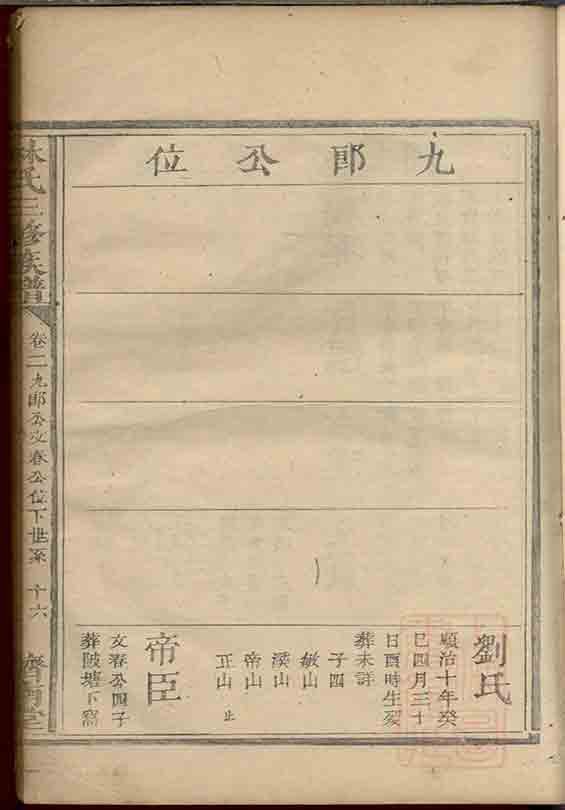 九郎公位
劉氏
順治十年癸
巳四月三十
日酉時生歿
葬未詳
子四
敏山
漢山
帝山
正山 止
帝臣
文春公四子
葬陂塘下窩
林氏三修族譜
卷二九郎公文春公位下世系 十六
濟南堂